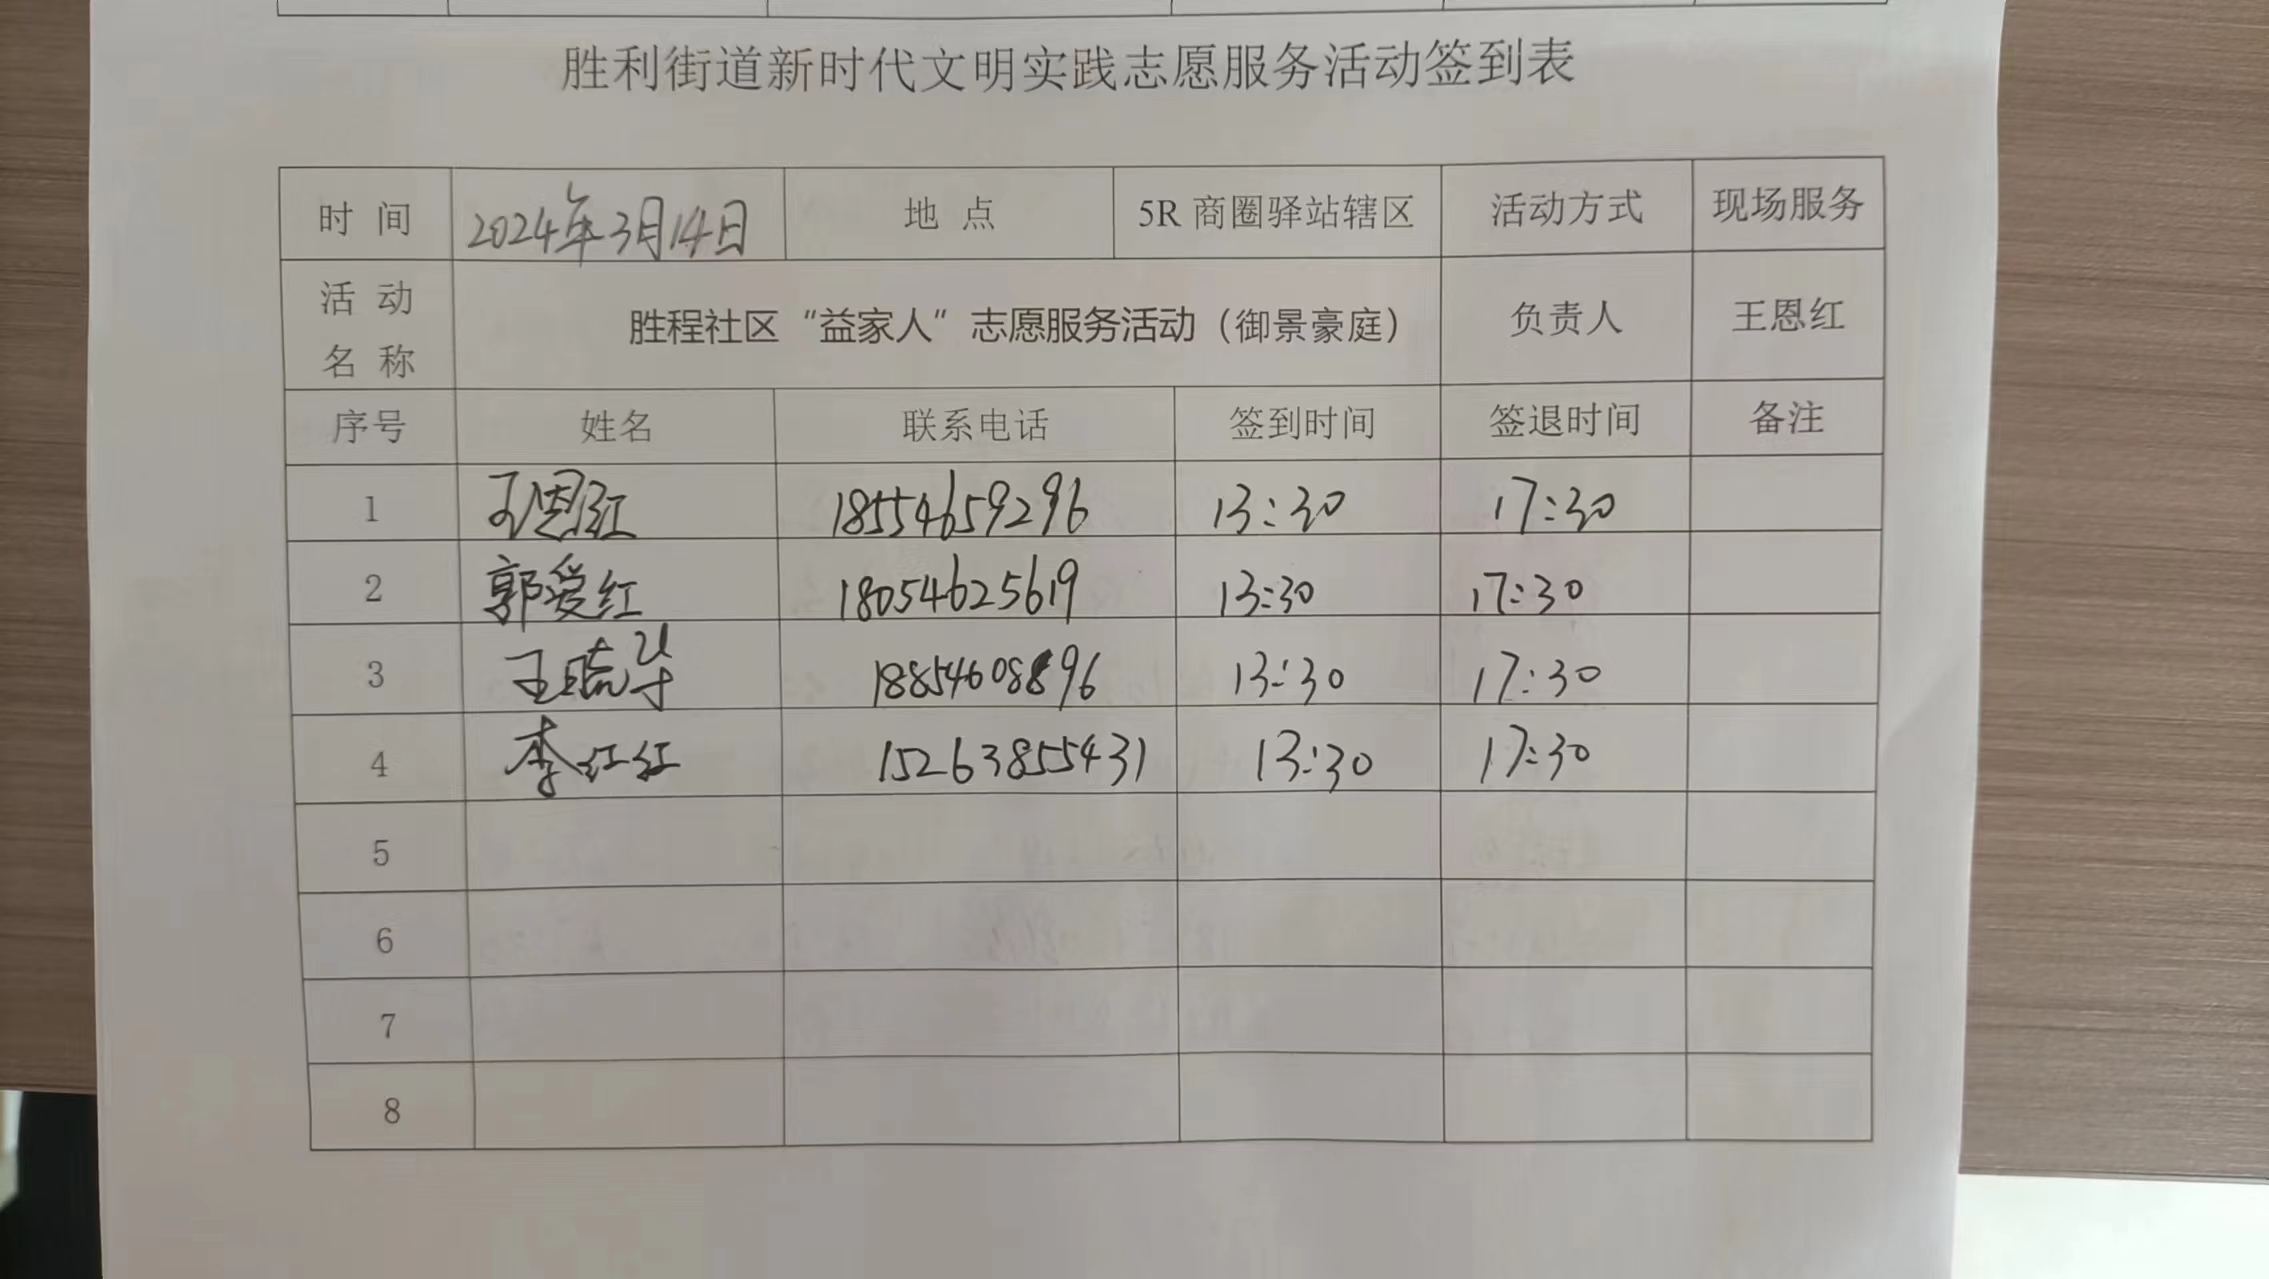 胜利街道新时代文明实践志愿服务活动签到表
时 间 2024年3月14日 地 点 5R 商圈驿站辖区 活动方式 现场服务
活 动
名 称 胜程社区“益家人”志愿服务活动（御景豪庭） 负责人 王恩红
序号 姓名 联系电话 签到时间 签退时间 备注
1 王恩红 18554659296 13:30 17:30
2 郭爱红 18054625619 13:30 17:30
3 王晓华 18854608896 13:30 17:30
4 李红红 15263855431 13:30 17:30
5
6
7
8